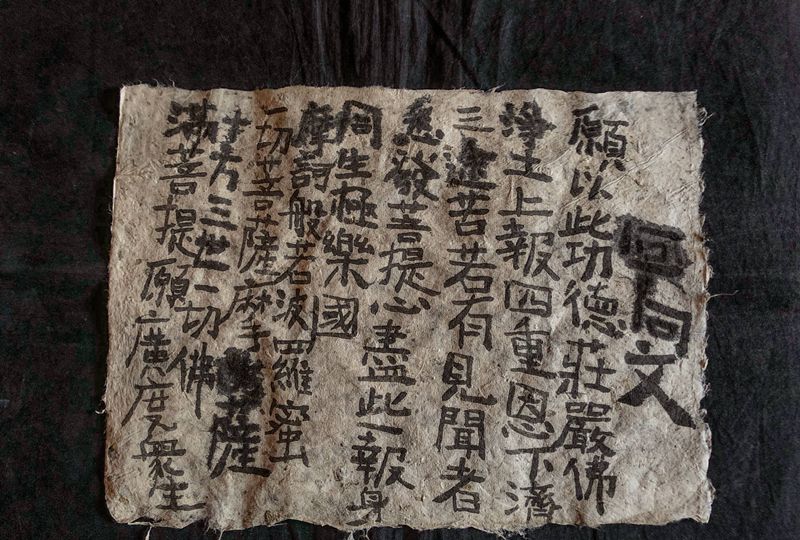 回向文
願以此功德莊嚴佛
淨土上報四重恩下濟
三途苦若有見聞者
悉發菩提心盡此一報身
同生極樂國
摩訶般若波羅蜜
一切菩薩摩薩
十方三世一切佛
滿菩提願廣度眾生